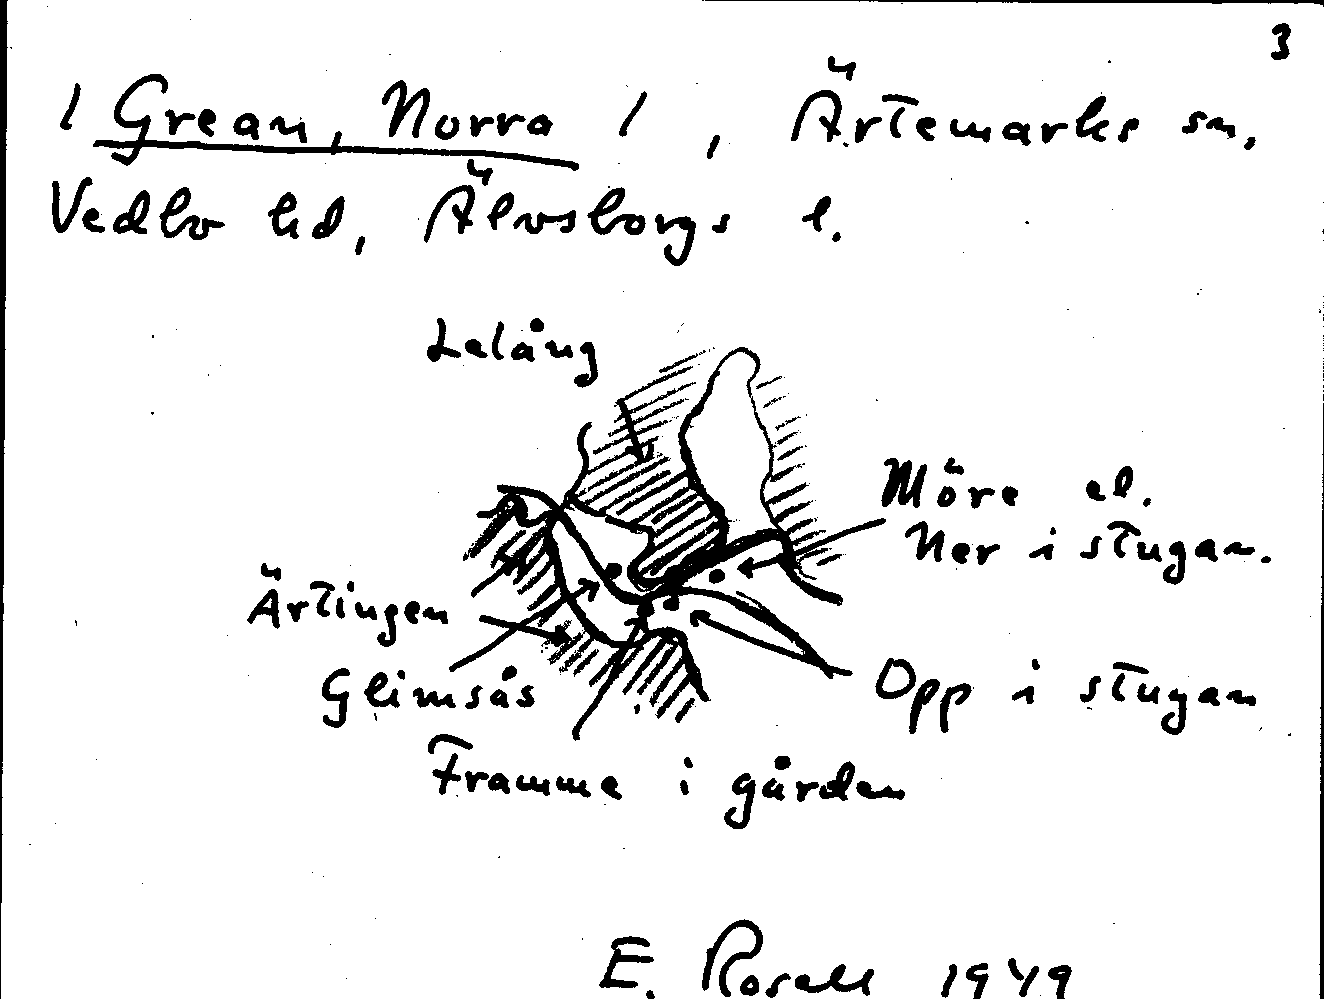 3
/ Grean, Norra / , Ärtemarks sn,
Vedbo hd, Älvsborgs l.
Lelång
Möre el.
Ner i stugan.
Ärtingen
Glimsås
Opp i stugan
Framme i gården
E. Rosell 1949